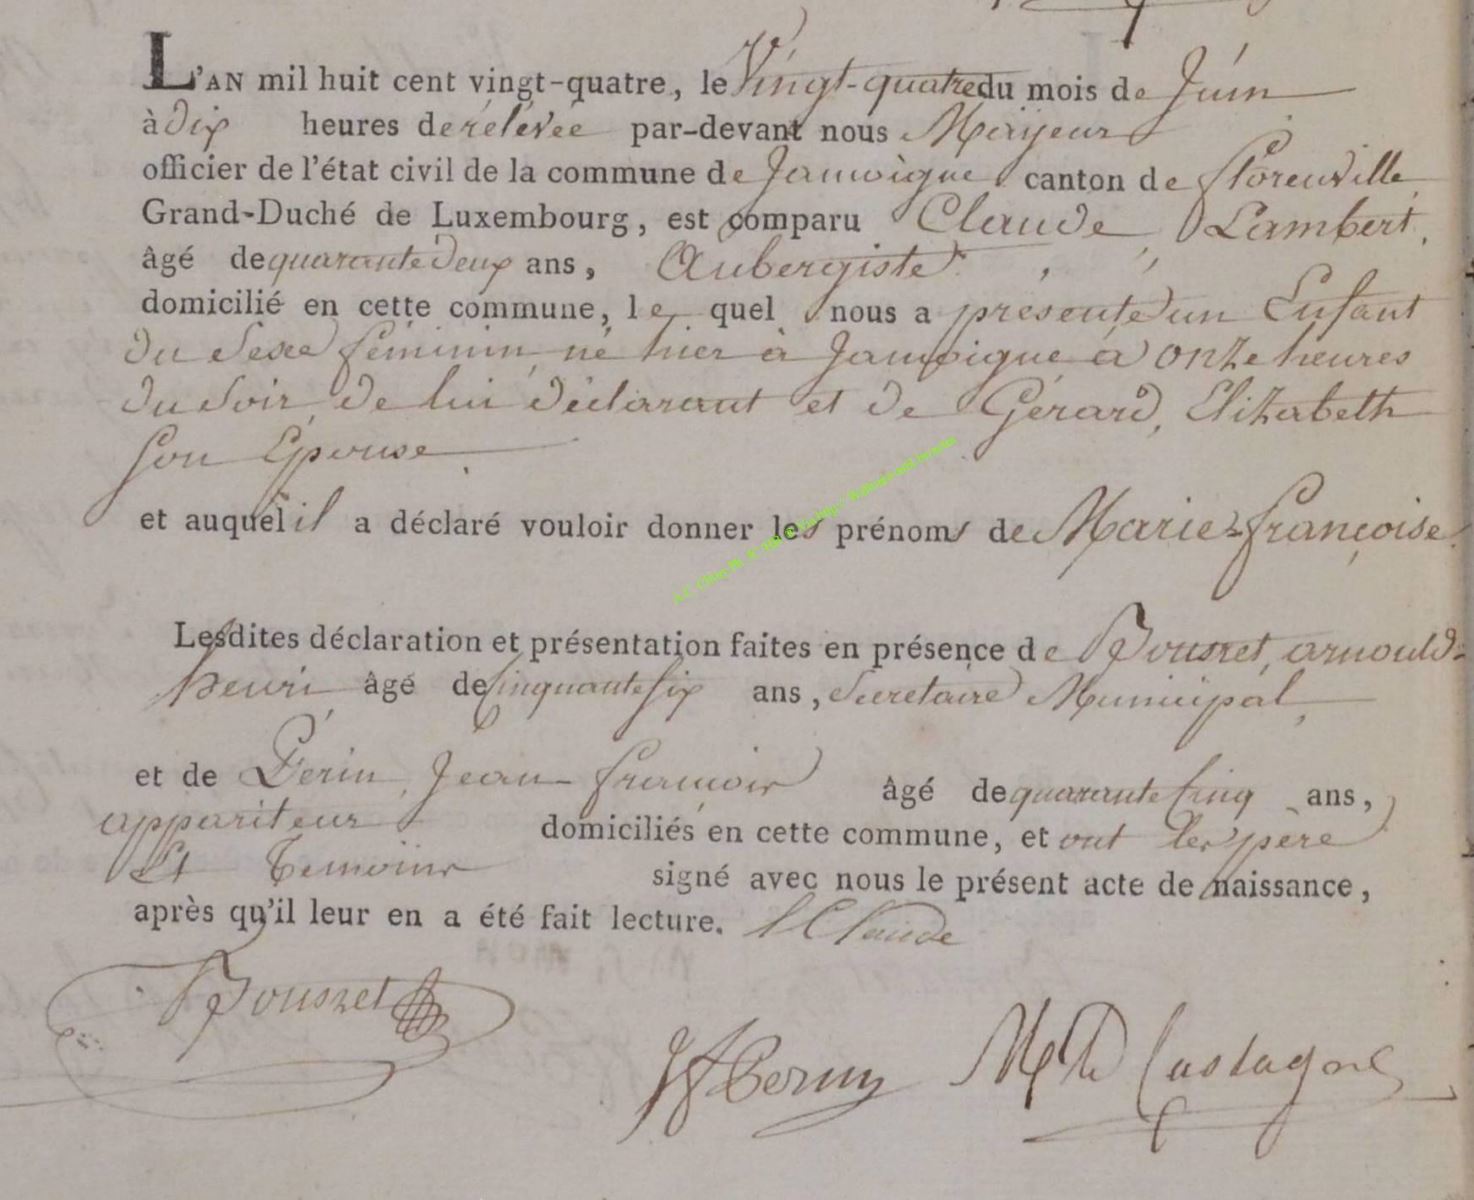 L'AN mil huit cent vingt-quatre, le Vingt-quatre du mois de Juin
à dix heures de rélévée par-devant nous Mayeur
officier de l'état civil de la commune de Jamoigne canton de florenville
Grand-Duché de Luxembourg, est comparu Claude, Lambert,
âgé de quarante deux ans, Aubergiste
domicilié en cette commune, le quel nous a présenté un Enfant
du Sexe féminin, né hier à Jamoigne à onze heures
du Soir, de lui déclarant et de Gérard, Elizabeth
Son Epouse.
et auquel il a déclaré vouloir donner les prénoms de Marie-françoise.
Lesdites déclaration et présentation faites en présence de Pousset, arnould-
henri âgé de Cinquante Six ans, Secretaire Municipal,
et de Perin, Jean-françois âgé de quarante Cinq ans,
appariteur domiciliés en cette commune, et ont les père
Et Temoins signé avec nous le présent acte de naissance,
après qu'il leur en a été fait lecture. L Claude
Pousset
JF Perin M D Castagne